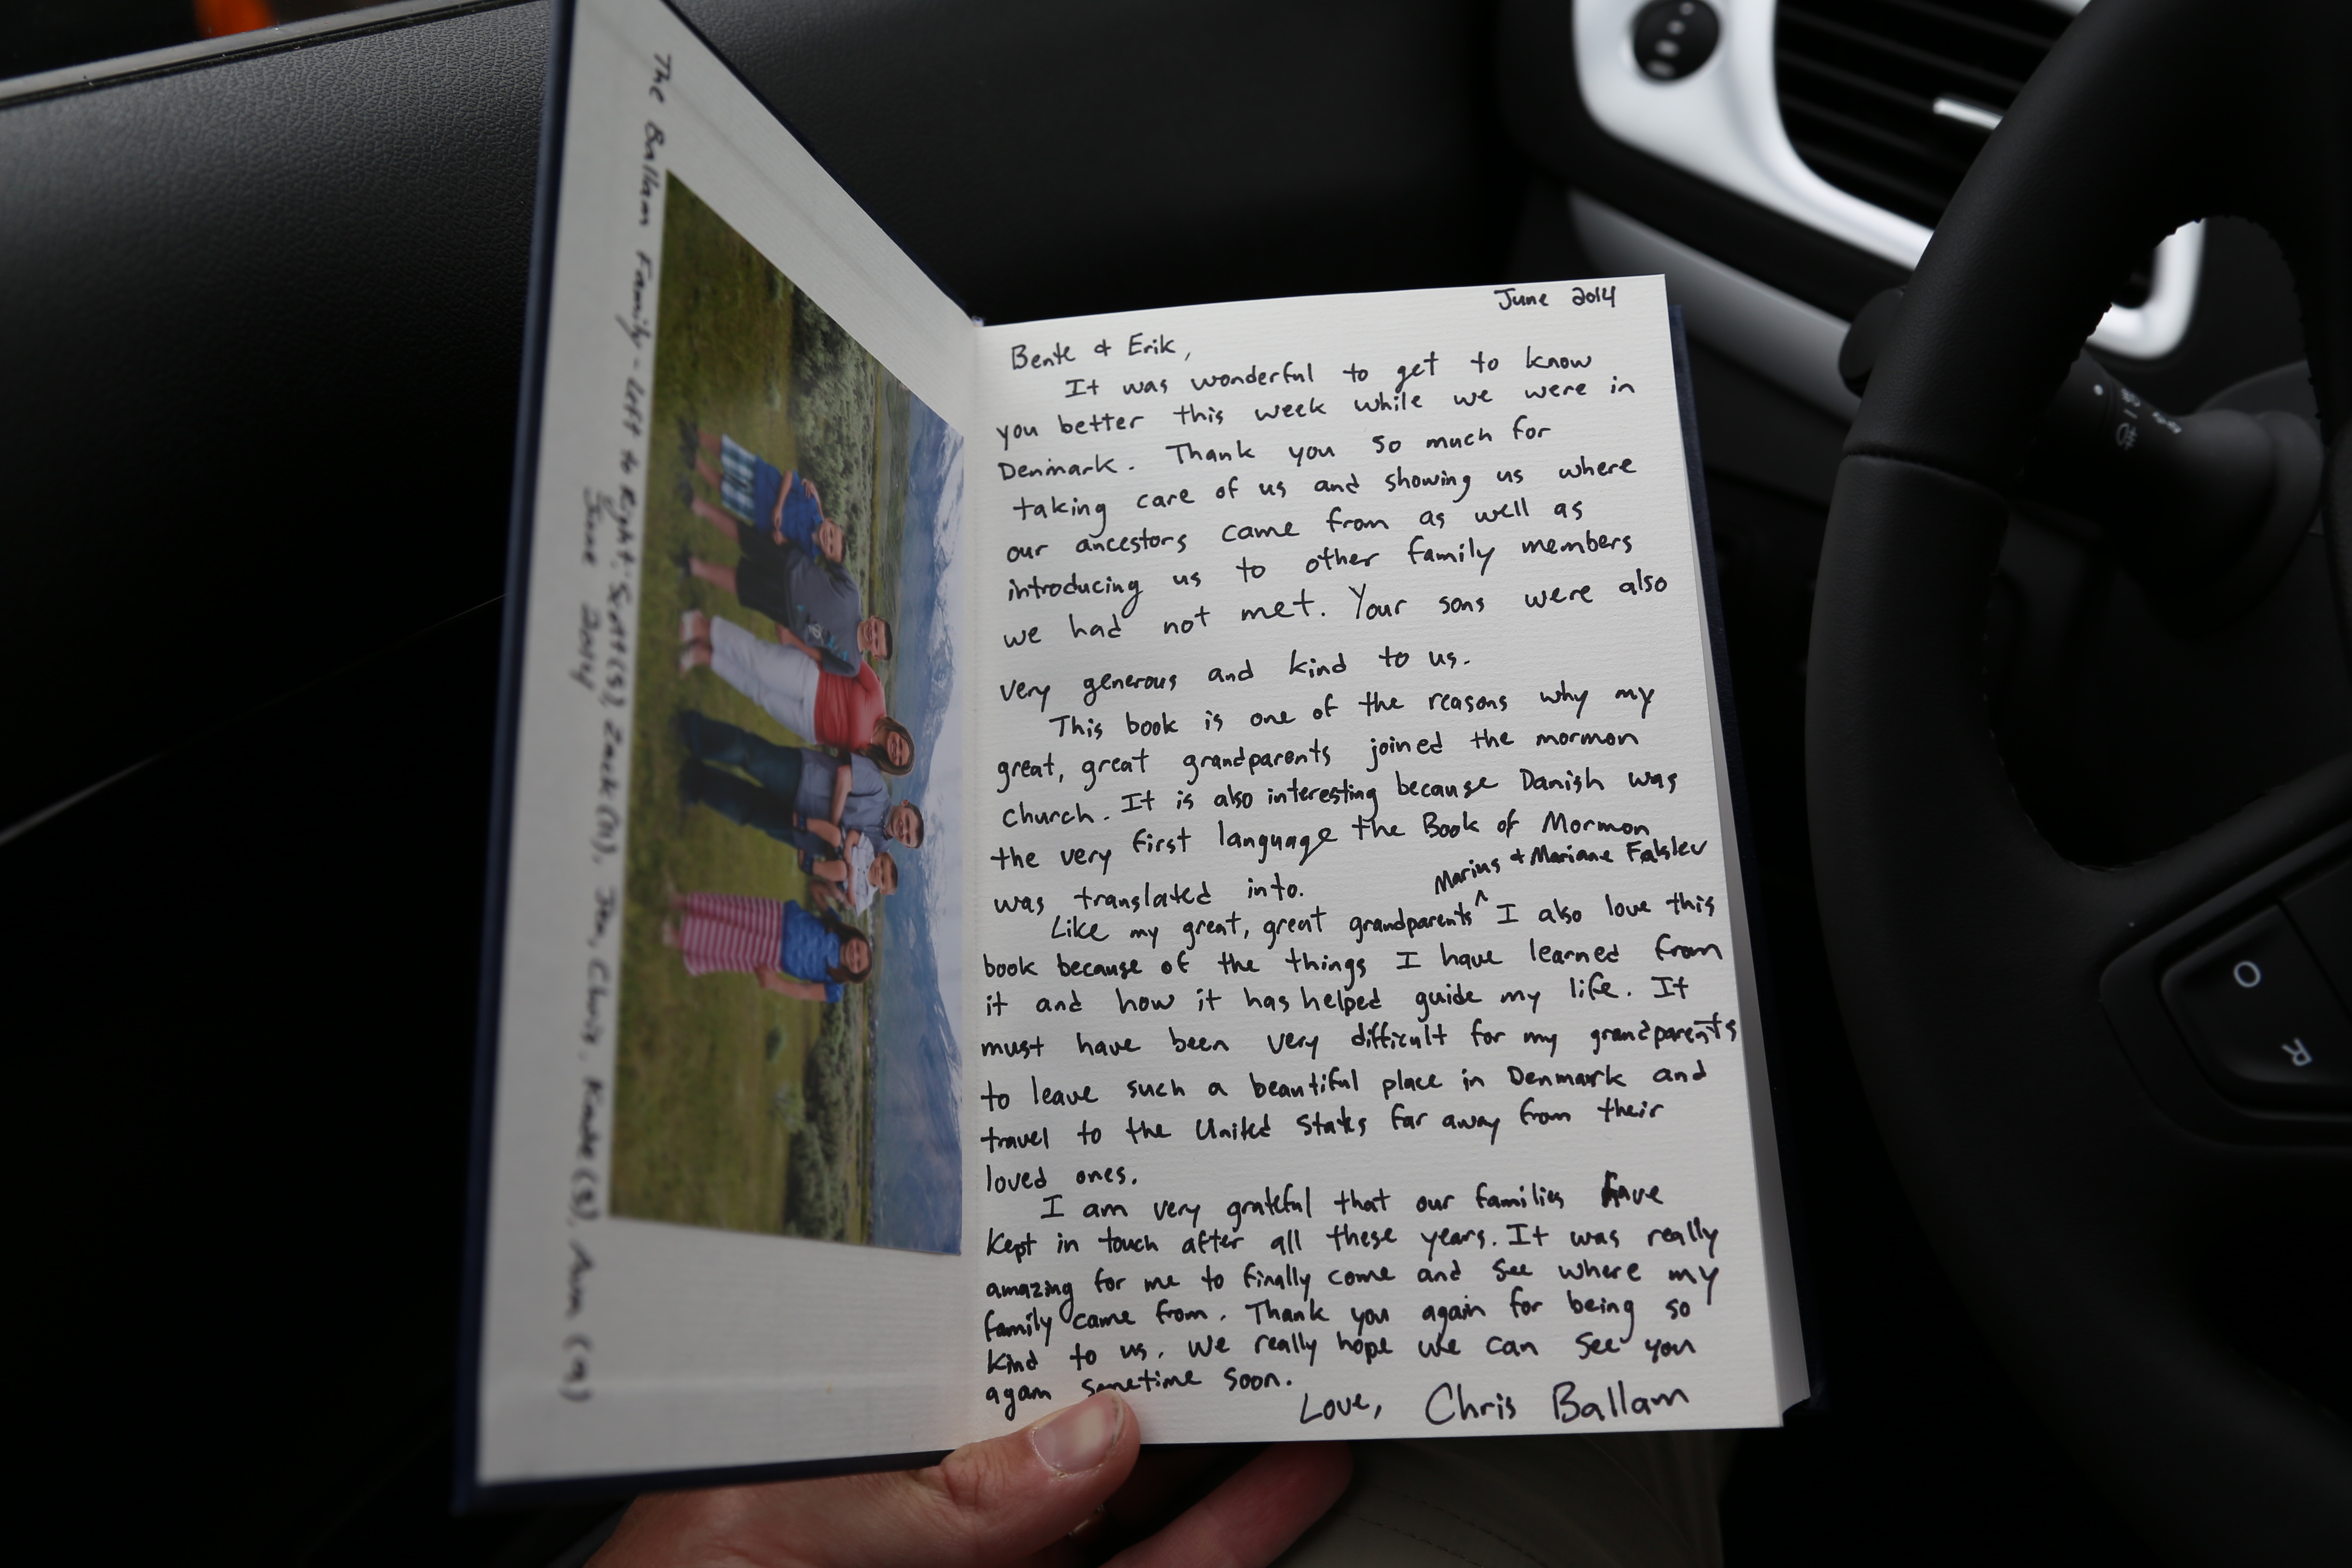 The Ballam Family - Left to Right: Scott (5), Zack (11), Jen, Chris, Kade (3), Avva (9)
June 2014
June 2014
Bente & Erik,
It was wonderful to get to know
you better this week while we were in
Denmark. Thank you so much for
taking care of us and showing us where
our ancestors came from as well as
introducing us to other family members
we had not met. Your sons were also
very generous and kind to us.
This book is one of the reasons why my
great, great grandparents joined the mormon
church. It is also interesting because Danish was
the very first language the Book of Mormon
was translated into.
Marius & Mariane Falslev
Like my great, great grandparents ^ I also love this
book because of the things I have learned from
it and how it has helped guide my life. It
must have been very difficult for my grandparents
to leave such a beautiful place in Denmark and
travel to the United States far away from their
loved ones.
I am very grateful that our families have
kept in touch after all these years. It was really
amazing for me to finally come and see where my
family came from. Thank you again for being so
kind to us. We really hope we can see you
again sometime soon.
Love, Chris Ballam
O
R